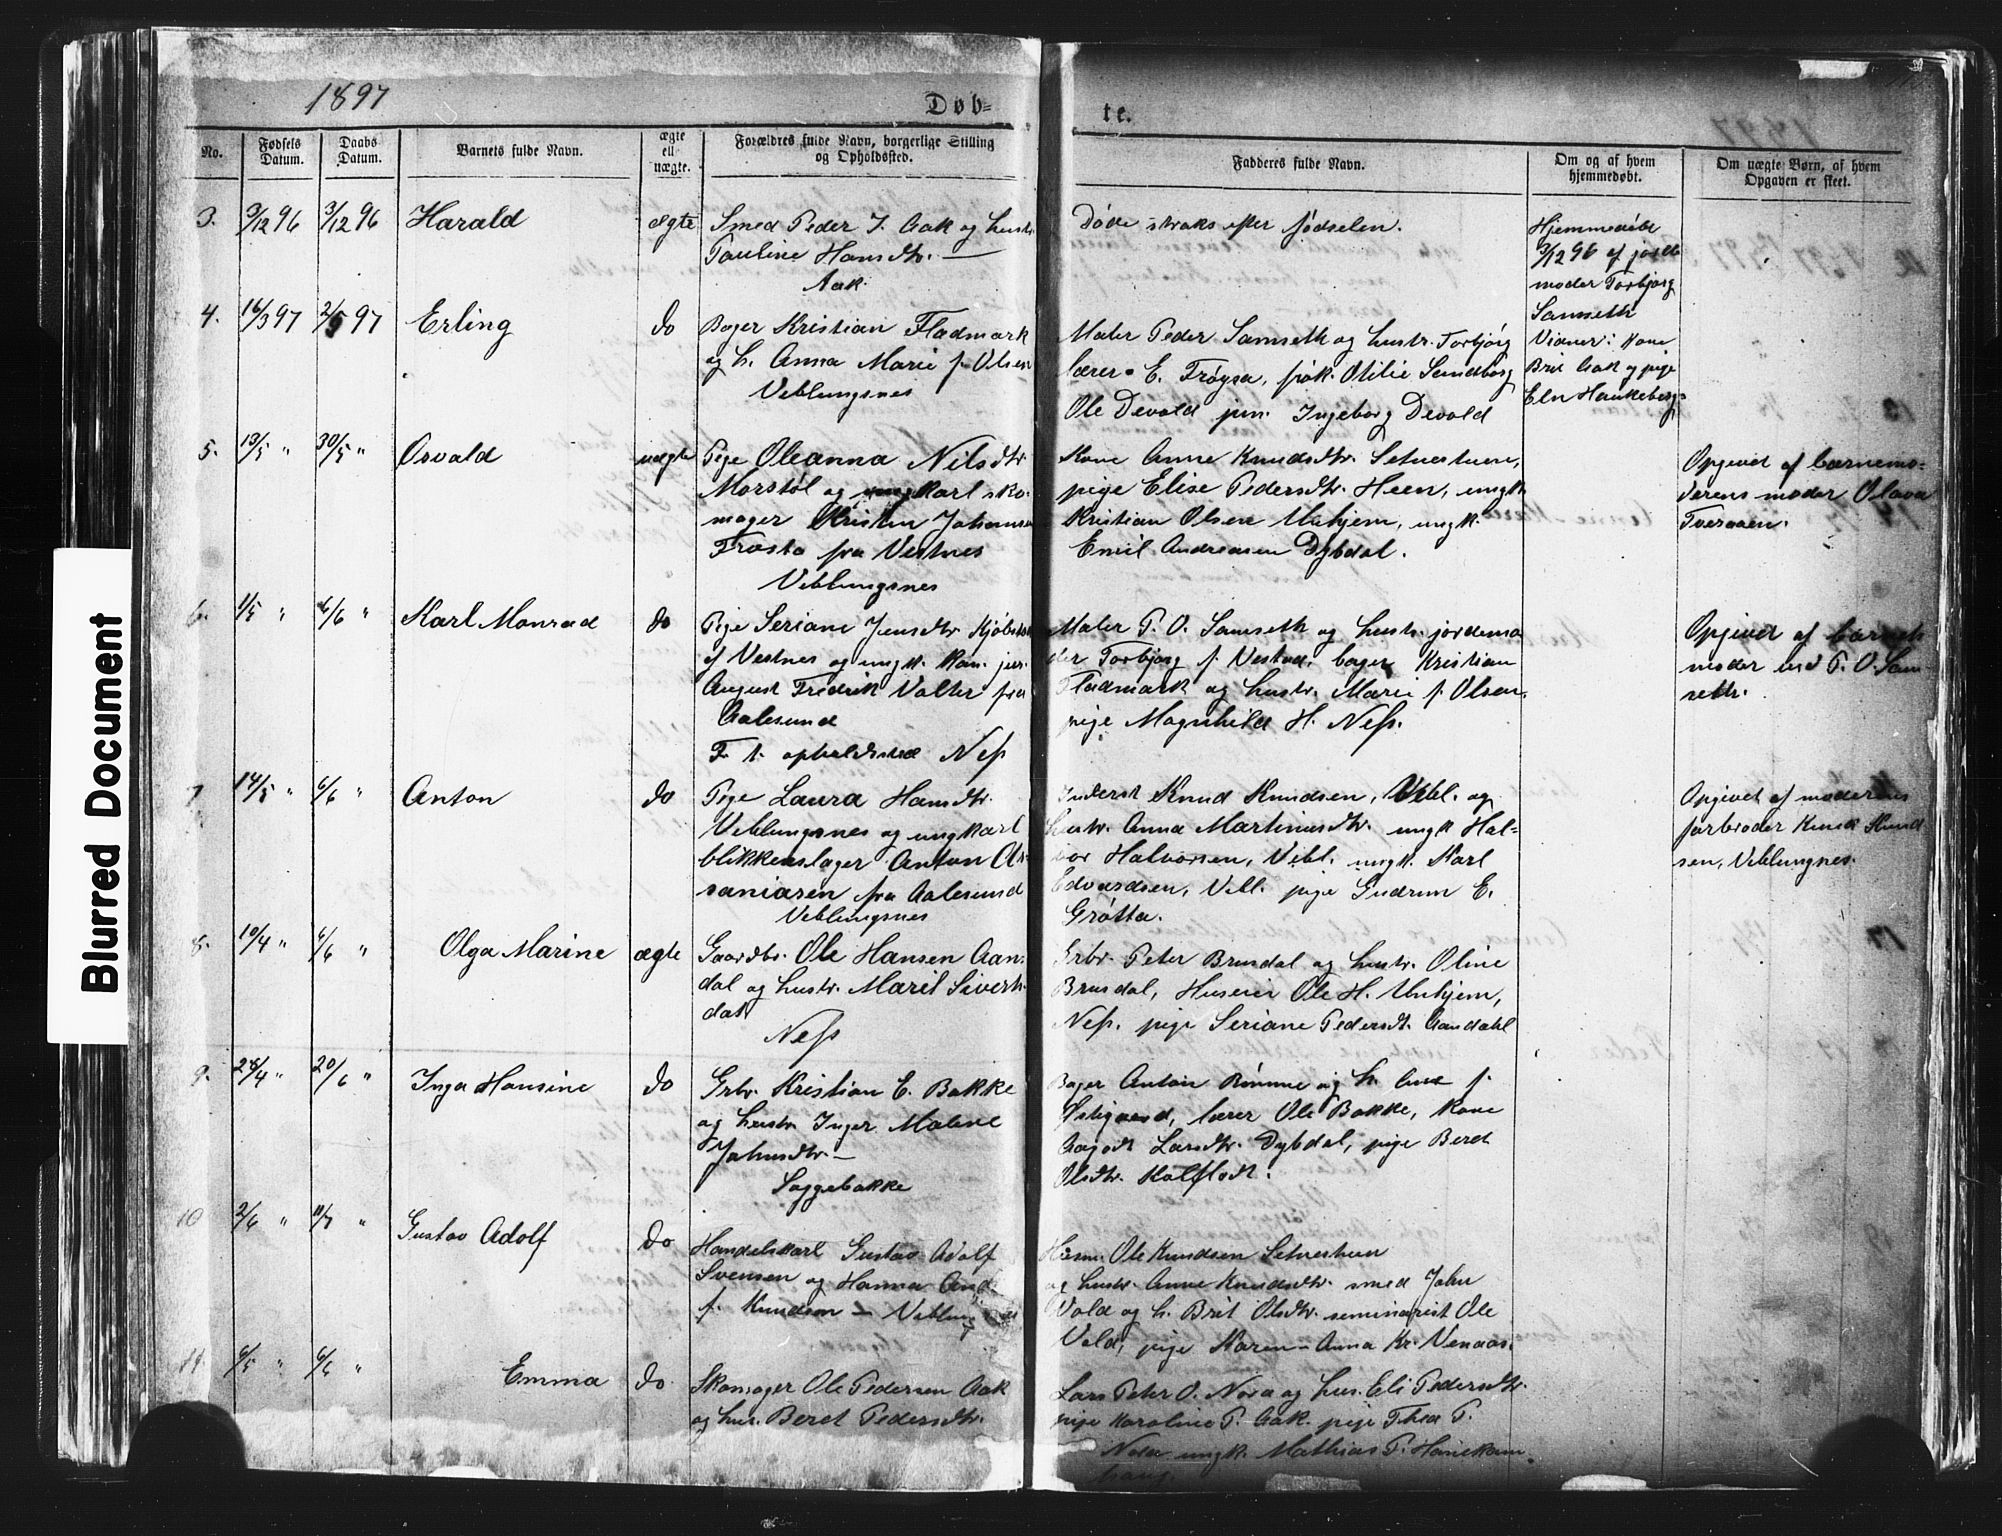 1897
Døb=
te.
No.
Fødsels Datum.
Daabs Datum.
Barnets fulde Navn.
ægte ell uægte.
Forældres fulde Navn, borgerlige Stilling og Opholdssted.
Fadderes fulde Navn.
Om og af hvem hjemmedøbt.
Om uægte Børn, af hvem Opgaven er skeet.
3. 3/12 96 3/12 96 Harald ægte
Smed Peder J. Aak og hustr.
Pauline Hansdtr. —
Aak
Døde straks efter fødselen.
Hjemmedøbt
3/12 96 af jorde
moder Torbjørg
Samseth
Vidner: Kone
Brit Aak og pige
Eln Haukeberg
4. 16/3 97 2/5 97 Erling do
Bager Kristian Fladmark
og h. Anna Marie f. Olsen
Veblungsnes
Maler Peder Samseth og hustr. Torbjørg
lærer E. Frøysa, frøk. Otilie Sundborg
Ole Devold jun. Ingeborg Devold
5. 13/5 " 30/5 " Osvald uægte
Pige Oleanna Nilsdtr.
Morstøl og ungkarl sko-
mager Kristen Johansen
Frosta fra Vestnes
Veblungsnes
Kone Anne Knudsdtr. Setnestuen,
pige Elise Pedersdtr. Heen, ungk.
Kristian Olsen Unhjem, ungk.
Emil Andreasen Dybdal.
Opgivet af barnemo-
derens moder Olava
Tveraaen.
6. 1/5 " 6/6 " Karl Monrad do
Pige Seriane Jensdtr. Kjøbstad
af Vestnes og ungk. kan. jur.
August Fredrik Valter fra
Aalesund
F. t. opholdssted Nes
Maler P. O. Samseth og hustr. jordemo
der Torbjørg f. Vestad, bager Kristian
Fladmark og hustr. Marie f. Olsen,
pige Magnhild H. Nes.
Opgivet af barnets
moder ved P. O. Sam
seth.
7 14/5 " 6/6 " Anton do
Pige Laura Hansdtr.
Veblungsnes og ungkarl
blikkenslager Anton
saniasen fra Aalesund
Veblungsnes
Inderst Knud Knudsen, Vebl. og
hustr. Anna Martinusdtr. ungk Hal-
vor Halvorsen, Vebl. ungk. Karl
Edvardsen, Vebl. pige Gudrun E.
Grøtta.
Opgivet af moderens
farbroder Knud Knud
sen, Veblungnes.
8. 10/4 " 6/6 " Olga Marine ægte
Gaardbr. Ole Hansen Aan-
dal og hustr. Marit Siverts-
dat
Nes
Grbr. Peter Brudal og hustr. Oline
Brusdal, Huseier Ole H. Unhjem,
Nes. pige Seriane Pedersdt. Aandahl
9. 28/4 " 20/6 " Inga Hansine do
Grbr. Kristian E. Bakke
og hustr. Inger Malene
Johnsdtr. —
Soggebakke
Bager Anton Rømme og h. f.
Østigaard, lærer Ole Bakke, Kone
Aagot Larsdtr. Dybdal, pige Berit
Olsdtr. Kalflodt.
10 2/6 " 11/7 " Gustav Adolf do
Handelskarl Gustav Adolf
Svensen og Hanna And.
f. Knudsen — Veblungsnes
Husm. Ole Knudsen Setnestuen
og hustr. Anne Knudsdtr. smed John
Vold og h. Brit Olsdtr. seminarist Ole
Vold, pige Karen Anna Kr. Venaas.
11 6/5 " 6/6 " Emma do.
Skomager Ole Pedersen Aak
og hus. Beret Pedersdtr.
Lars Peter O. Nora og hus. Eli Pedersdtr.
pige Karoline P. Aak. pige Thea P.
Nora ungk. Mathias P. Hanekam
haug
Blurred Document